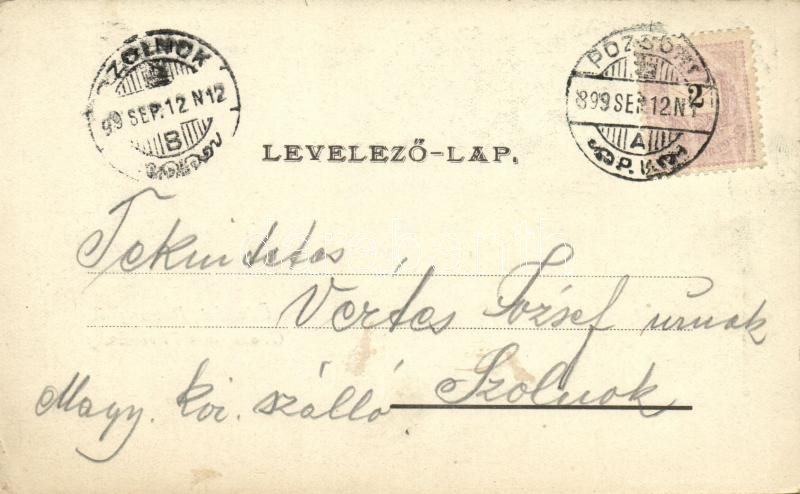 SZOLNOK
99 SEP. 12 N 12
B
POZSONY
899 SEP. 12 N 1
A
P.V.
2
LEVELEZŐ-LAP.
Tekintetes
Vértes József úrnak
Szolnok
Magy. kir. szálló